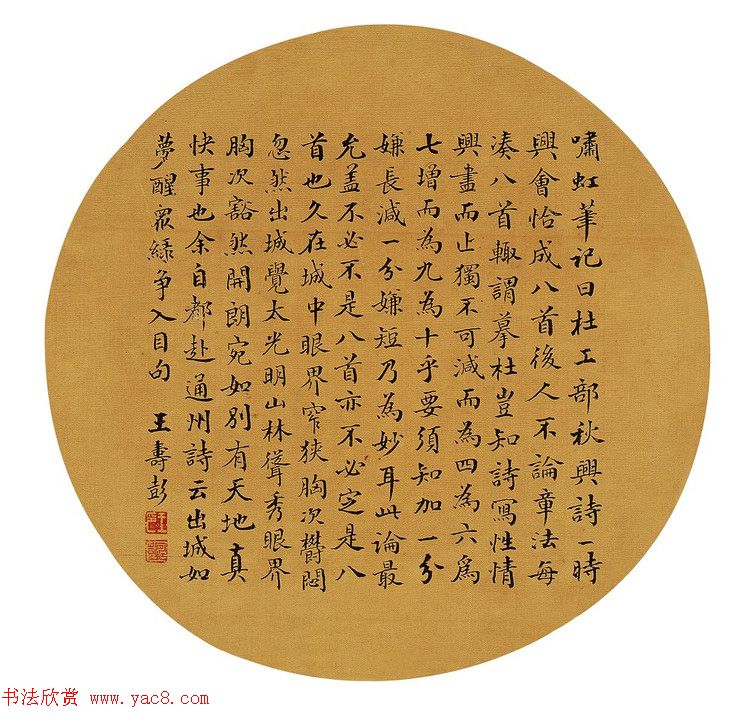 嘯虹筆記曰杜工部秋興詩一時
興會恰成八首後人不論章法每
湊八首輒謂摹杜豈知詩寫性情
興盡而止獨不可減而為四為六為
七增而為九為十乎要須知加一分
嫌長減一分嫌短乃為妙耳此論最
允蓋不必不是八首亦不必定是八
首也久在城中眼界窄狹胸次鬱悶
忽然出城覺太光明山林聳秀眼界
胸次豁然開朗宛如別有天地真
快事也余自都赴通州詩云出城如
夢醒眾綠爭入目句 王壽彭
书法欣赏 www.yac8.com